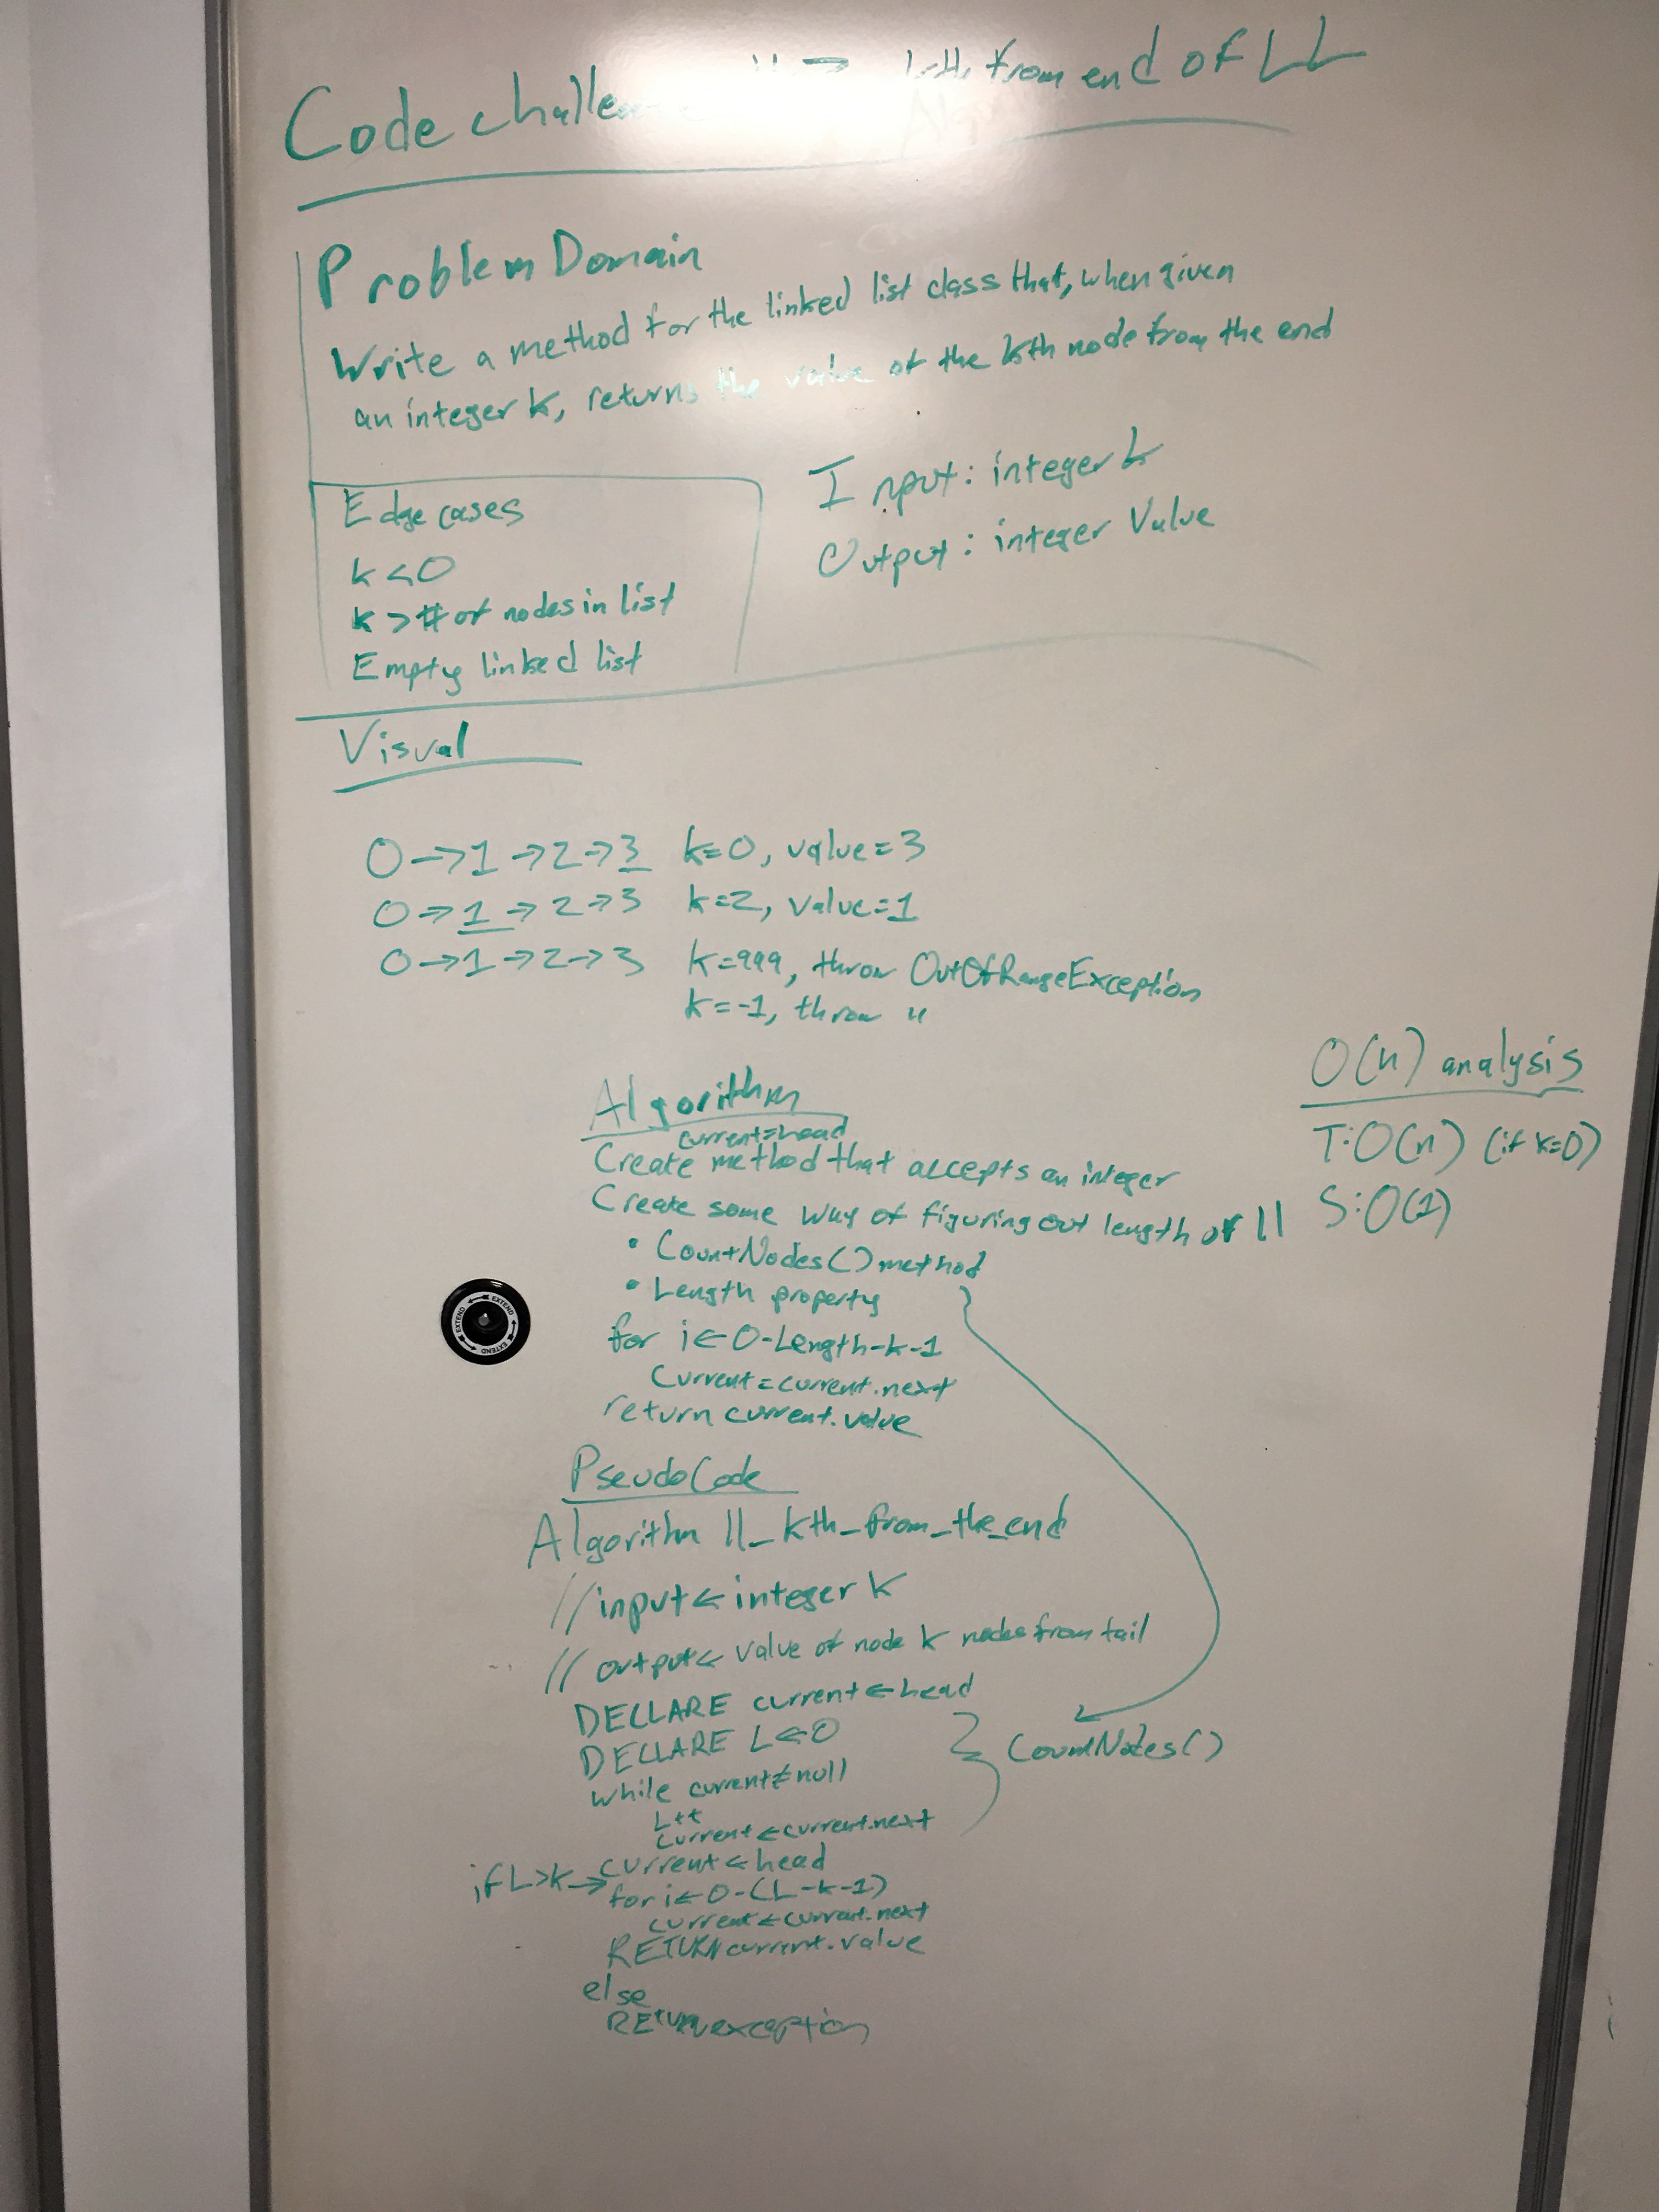 Code challe
kth from end of LL
Problem Domain
Write a method for the linked list class that, when given
an integer k, returns the value of the kth node from the end
Edge cases
k<0
k > # of nodes in list
Empty linked list
Input: integer k
Output: integer Value
Visual
0→1→2→3 k=0, value=3
0→1→2→3 k=2, value=1
0→1→2→3 k=999, throw OutOfRangeException
k=-1, throw "
O(n) analysis
T:O(n) (if k=0)
S:O(1)
Algorithm
current=head
Create method that accepts an integer
Create some way of figuring out length of ll
• CountNodes() method
• Length property
for i←0-Length-k-1
Current=current.next
return current.value
PseudoCode
Algorithm ll_kth_from_the_end
//input← integer k
//output← value of node k nodes from tail
DECLARE current←head
DECLARE L←0
while current≠null
L++
current←current.next
CountNodes()
if L>k→
current←head
for i←0-(L-k-1)
current←current.next
RETURN current.value
else
RETURN exception
EXTEND EXTEND EXTEND EXTEND